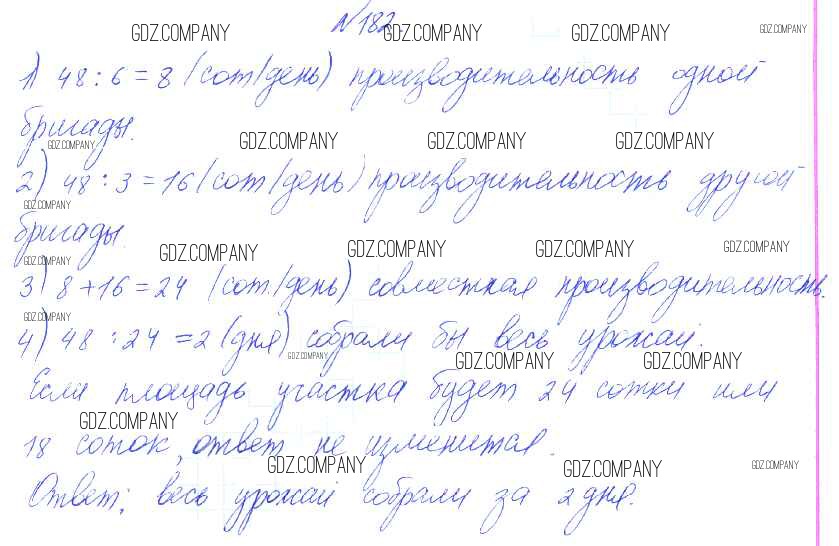 №182.
GDZ.COMPANY GDZ.COMPANY GDZ.COMPANY GDZ.COMPANY
1) 48 : 6 = 8 (сот/день) производительность одной
бригады.
GDZ.COMPANY GDZ.COMPANY GDZ.COMPANY GDZ.COMPANY
2) 48 : 3 = 16 (сот/день) производительность другой
GDZ.COMPANY
бригады.
GDZ.COMPANY GDZ.COMPANY GDZ.COMPANY GDZ.COMPANY GDZ.COMPANY
3) 8 + 16 = 24 (сот./день) совместная производительность.
GDZ.COMPANY
4) 48 : 24 = 2 (дня) собрали бы весь урожай.
GDZ.COMPANY GDZ.COMPANY GDZ.COMPANY
Если площадь участка будет 24 сотки или
GDZ.COMPANY
18 соток, ответ не изменится.
GDZ.COMPANY GDZ.COMPANY GDZ.COMPANY
Ответ: весь урожай собрали за 2 дня.